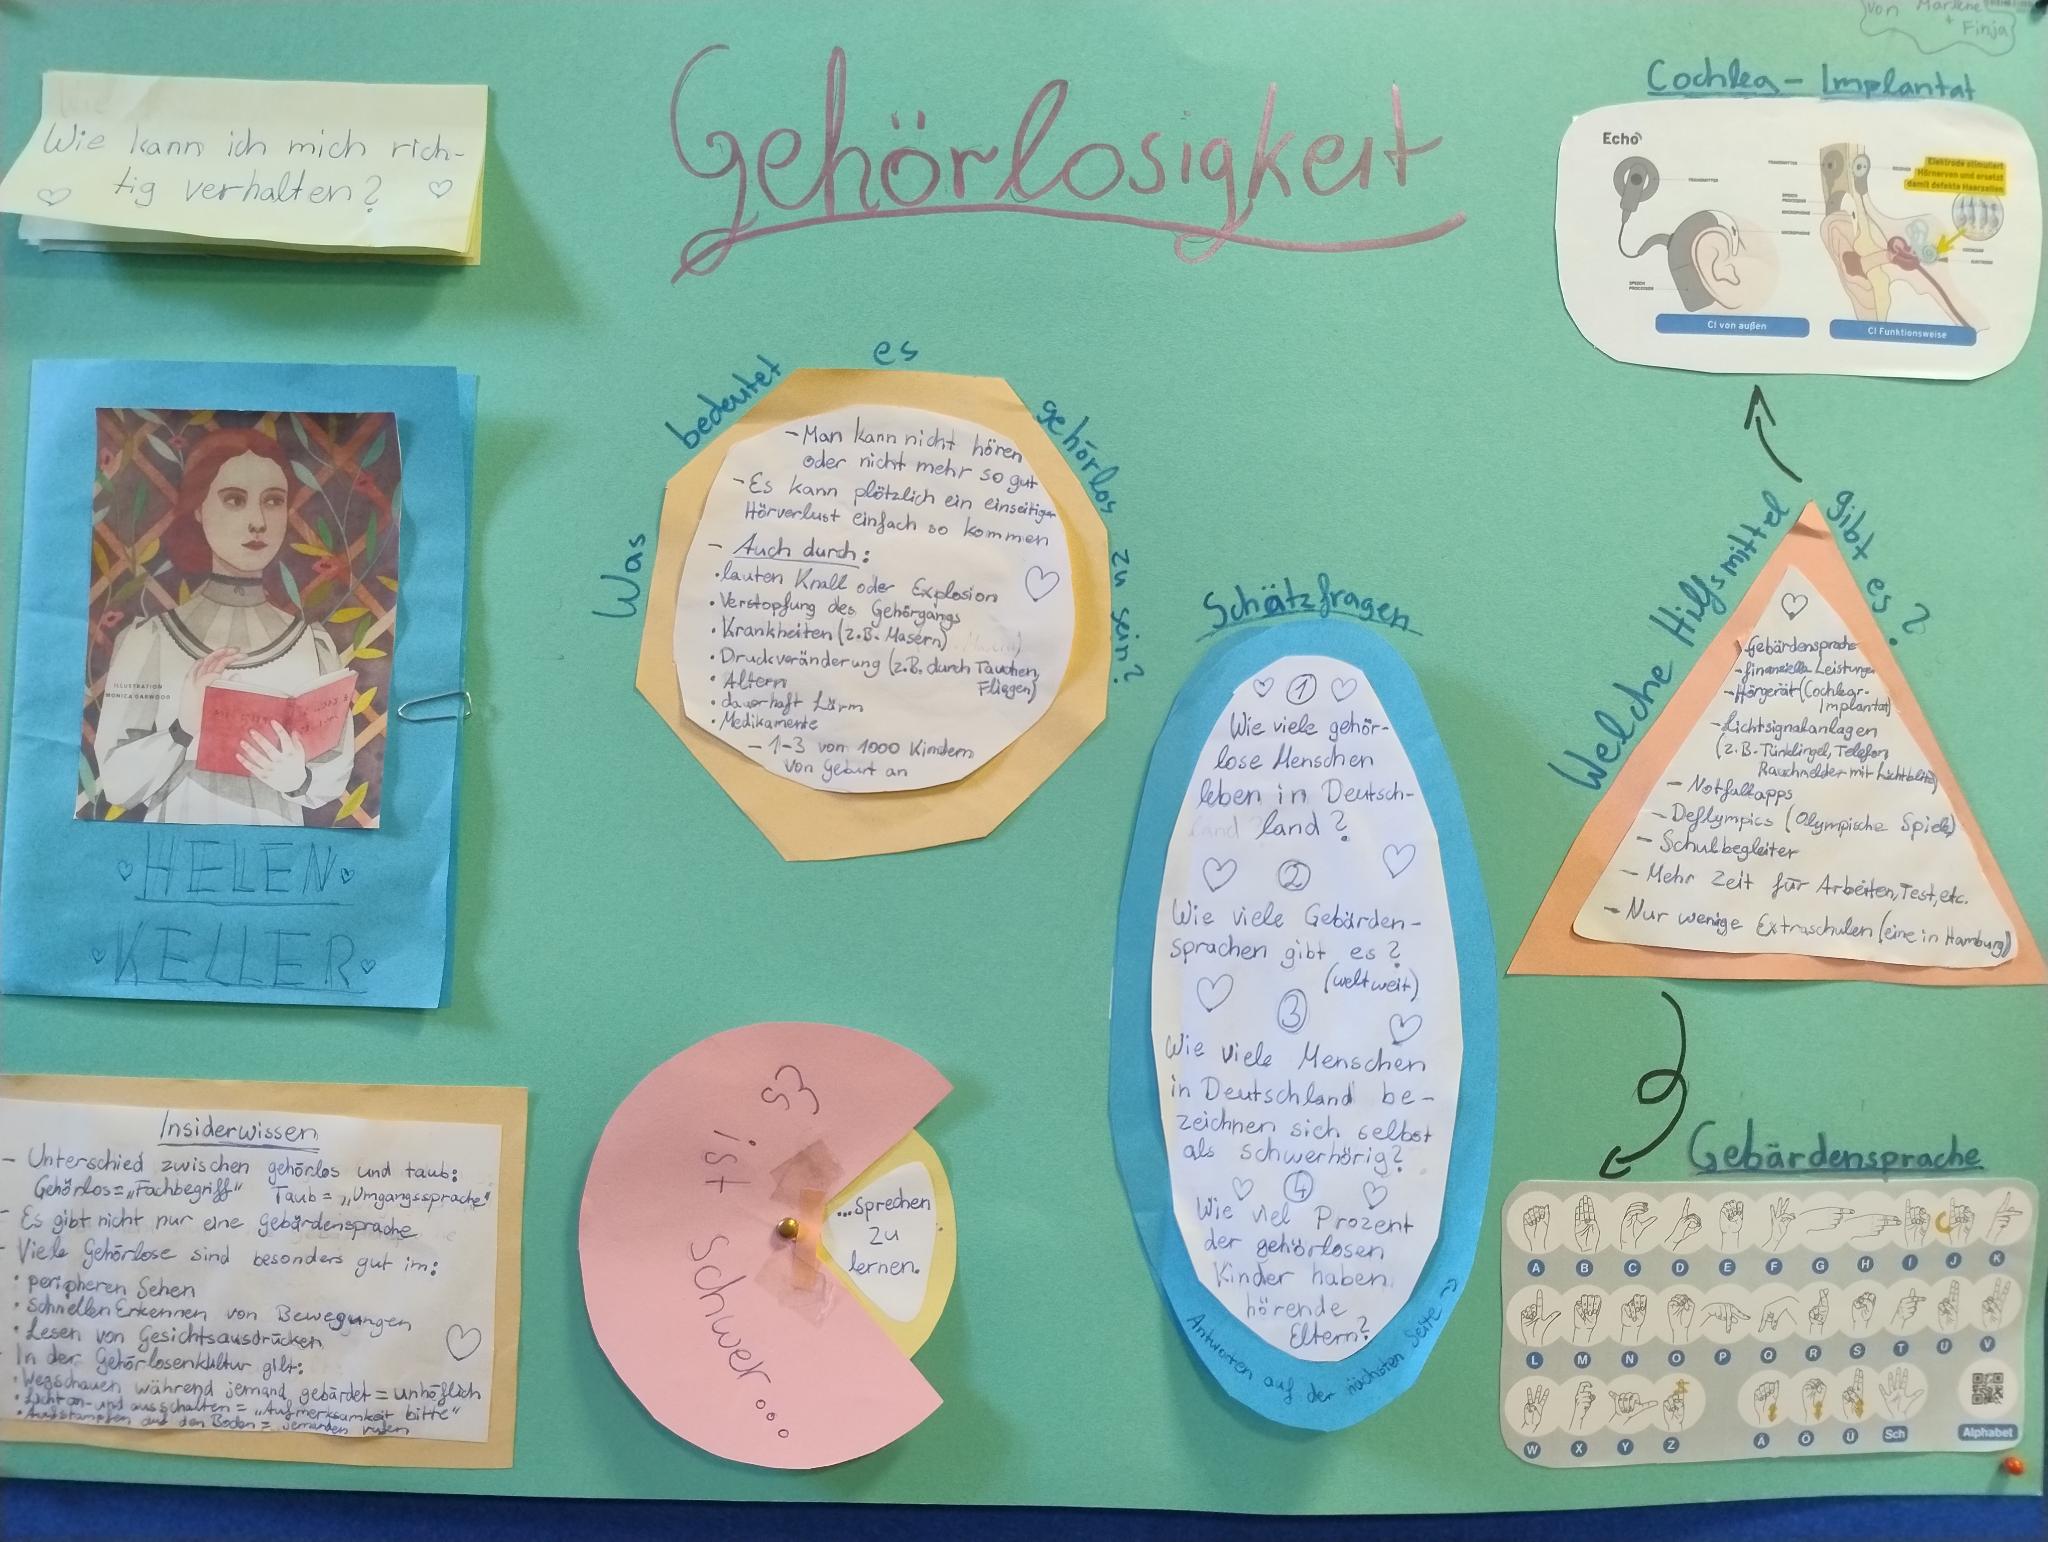 von Marlene
+
Finja
Gehörlosigkeit
Wie kann ich mich rich-
tig verhalten?
ILLUSTRATION
MONICA GARWOOD
HELEN
KELLER
Insiderwissen
- Unterschied zwischen gehörlos und taub:
Gehörlos = „Fachbegriff" Taub = „Umgangssprache"
- Es gibt nicht nur eine Gebärdensprache
- Viele Gehörlose sind besonders gut im:
• peripheren Sehen
• schnellen Erkennen von Bewegungen
• Lesen von Gesichtsausdrücken
- In der Gehörlosenkultur gilt:
• Wegschauen während jemand gebärdet = unhöflich
• Licht an- und ausschalten = „Aufmerksamkeit bitte"
• Aufstampfen auf den Boden = jemanden rufen
Was bedeutet es gehörlos zu sein?
- Man kann nicht hören
oder nicht mehr so gut
- Es kann plötzlich ein einseitiger
Hörverlust einfach so kommen
- Auch durch:
• lauten Knall oder Explosion
• Verstopfung des Gehörgangs
• Krankheiten (z.B. Masern)
• Druckveränderung (z.B. durch Tauchen,
Fliegen)
• Altern
• dauerhaft Lärm
• Medikamente
- 1-3 von 1000 Kindern
von Geburt an
Es ist schwer...
...sprechen
zu
lernen.
Schätzfragen
1
Wie viele gehör-
lose Menschen
leben in Deutsch-
land?
2
Wie viele Gebärden-
sprachen gibt es?
(weltweit)
3
Wie viele Menschen
in Deutschland be-
zeichnen sich selbst
als schwerhörig?
4
Wie viel Prozent
der gehörlosen
Kinder haben
hörende
Eltern?
Antworten auf der nächsten Seite
Cochlea-Implantat
Echo
TRANSMITTER
SPEECH
PROCESSOR
TRANSMITTER
SPEECH
PROCESSOR
MICROPHONE
MICROPHONE
RECEIVER
Elektrode stimuliert
Hörnerven und ersetzt
damit defekte Haarzellen
CI von außen
CI Funktionsweise
Welche Hilfsmittel gibt es?
- Gebärdensprache
- finanzielle Leistungen
- Hörgerät (Cochlear-
Implantat)
- Lichtsignalanlagen
(z.B. Türklingel, Telefon,
Rauchmelder mit Lichtblitz)
- Notfallapps
- Deflympics (Olympische Spiele)
- Schulbegleiter
- Mehr Zeit für Arbeiten, Test, etc.
- Nur wenige Extraschulen (eine in Hamburg)
Gebärdensprache
A B C D E F G H I J K
L M N O P Q R S T U V
W X Y Z Ä Ö Ü Sch Alphabet